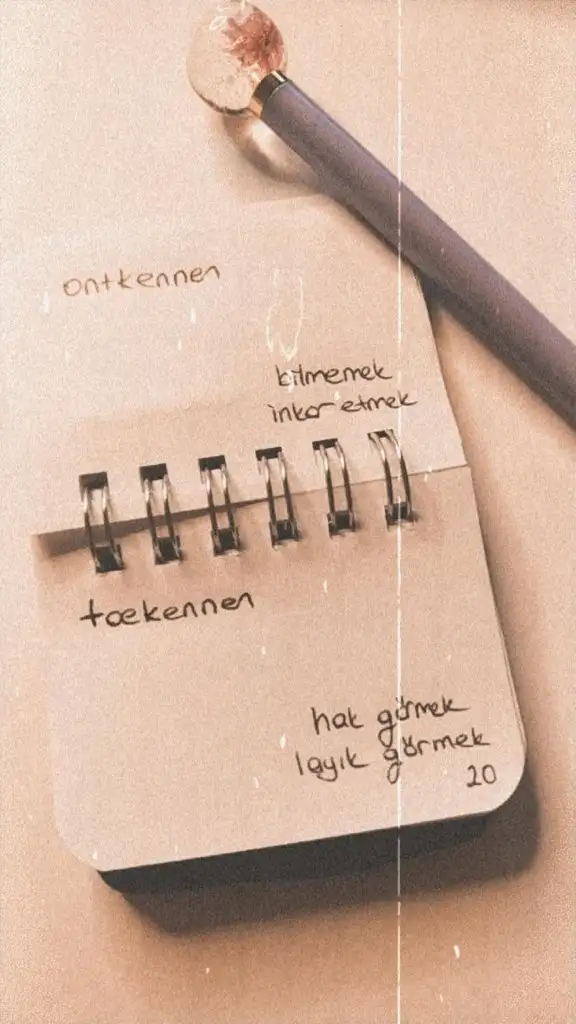 ontkennen
bilmemek
inkar etmek
toekennen
hak görmek
layık görmek
20